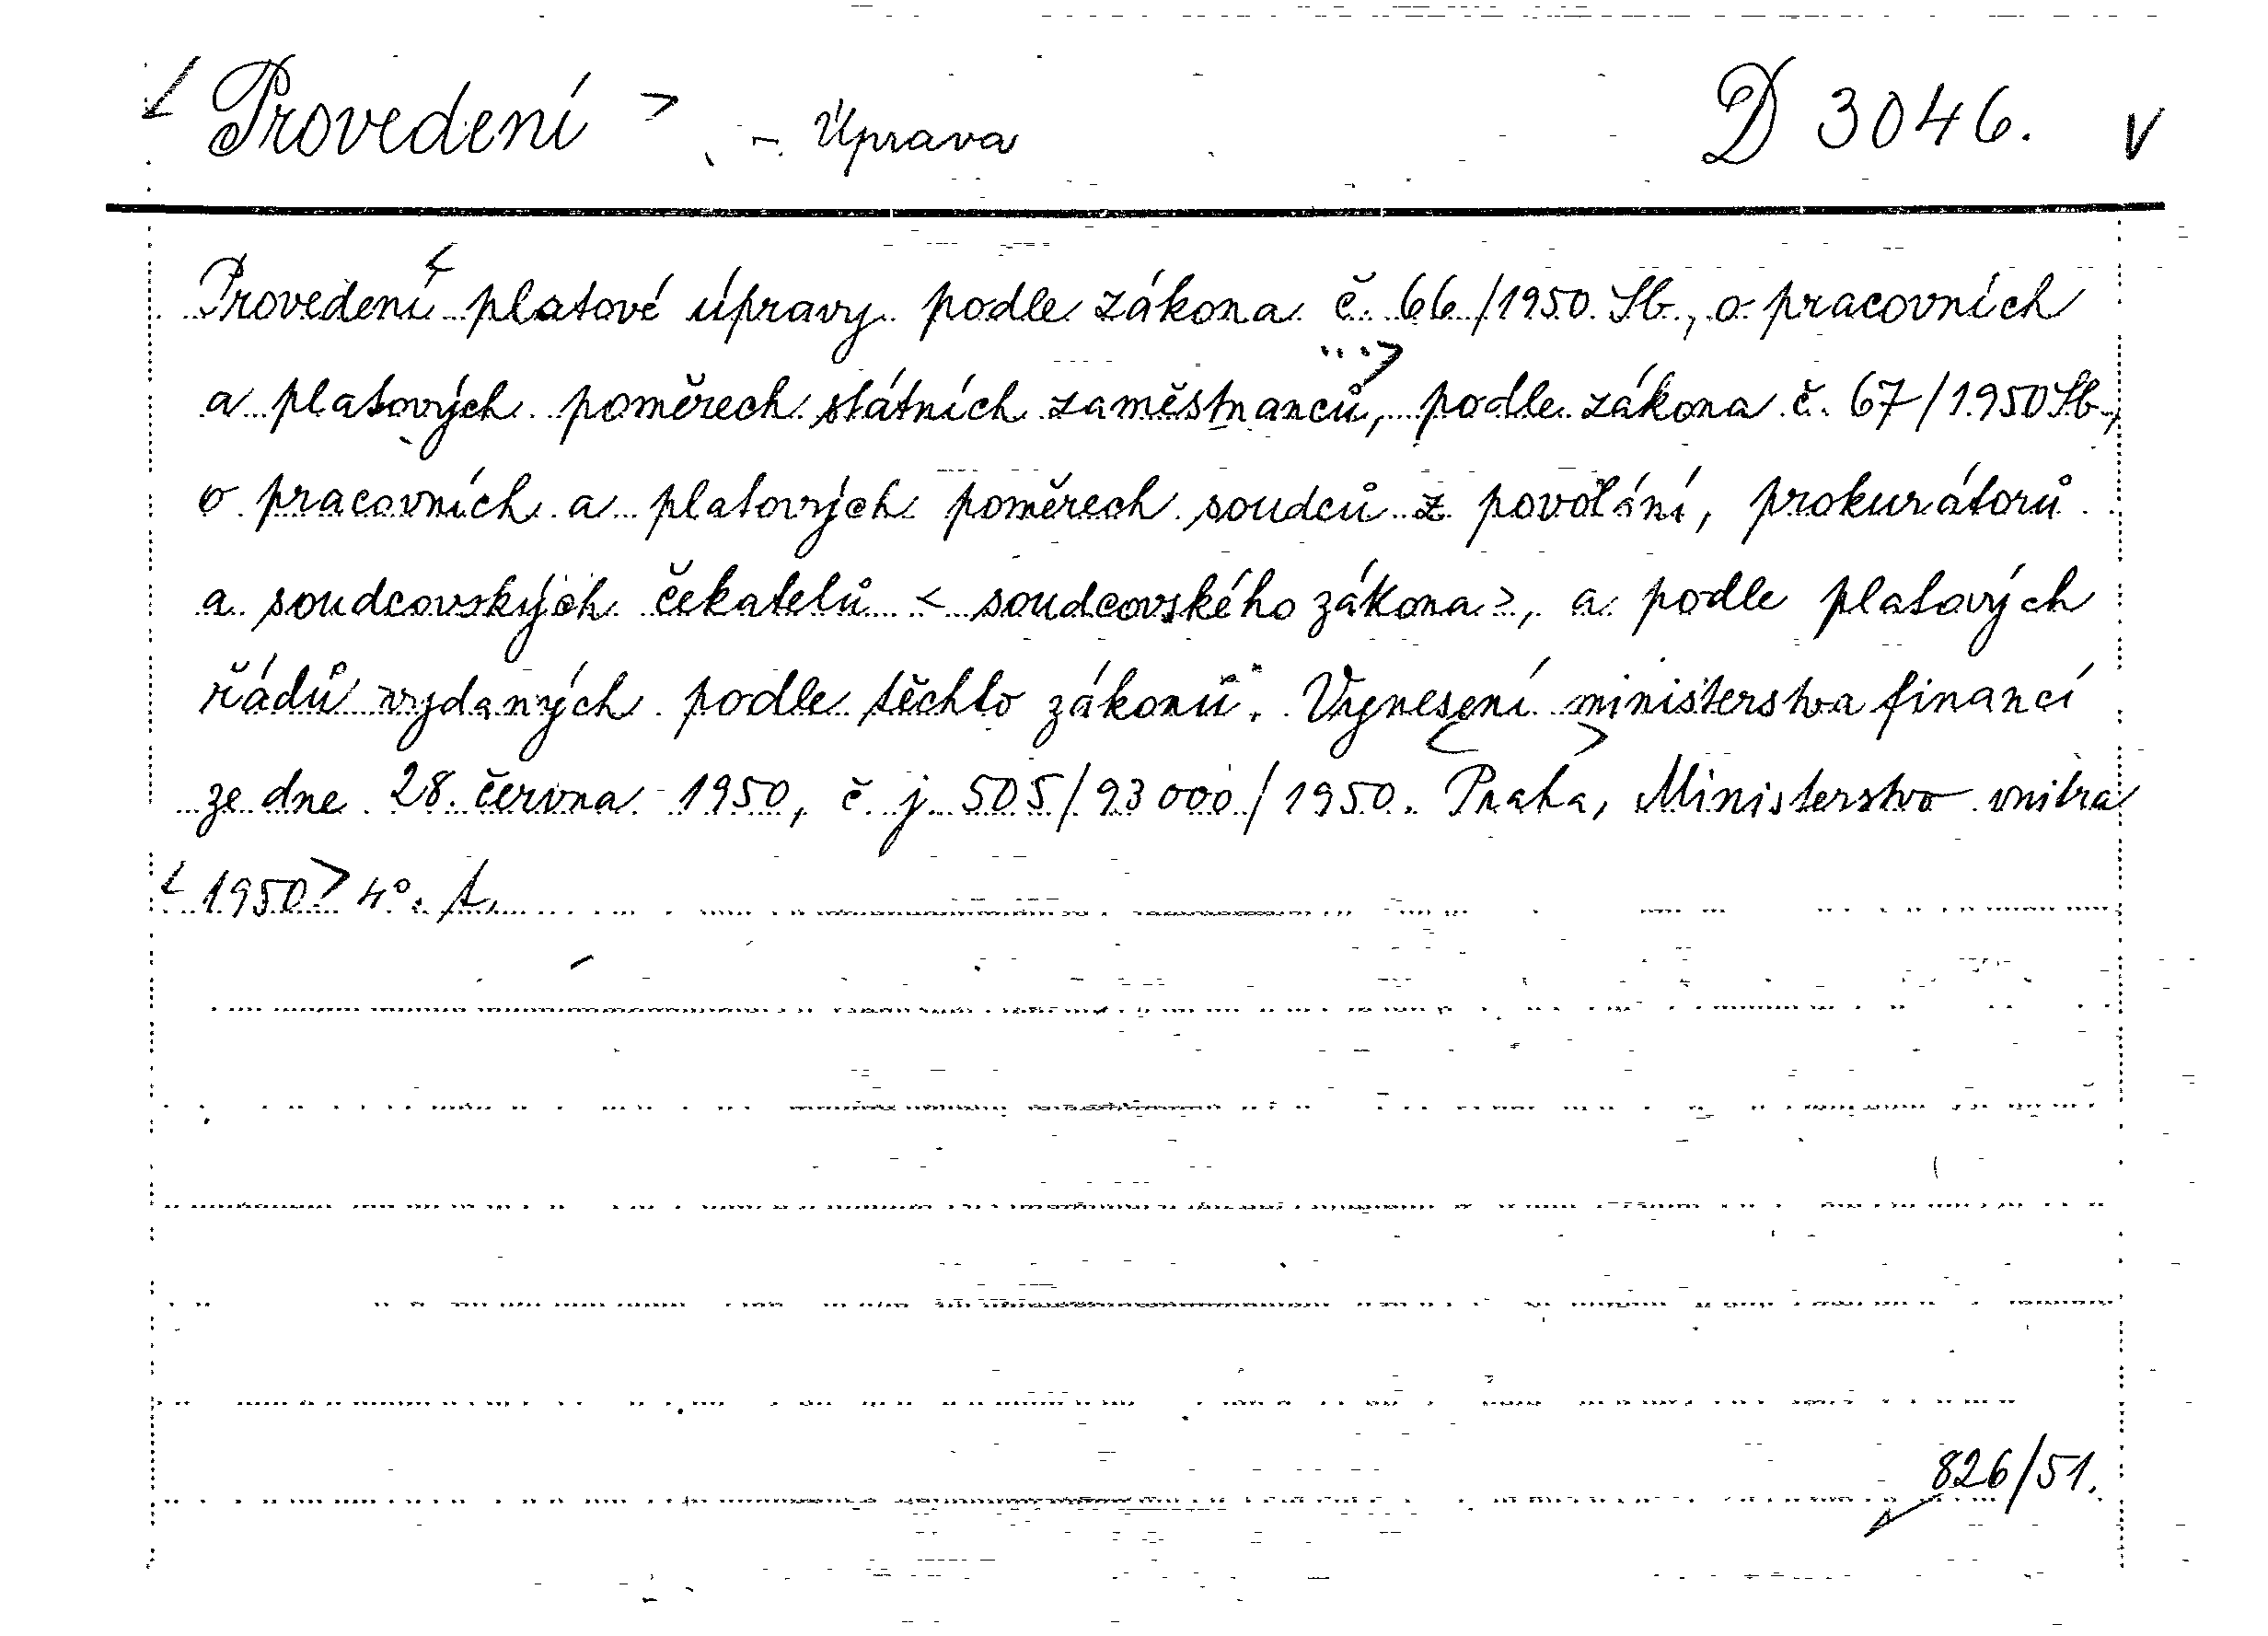 < Provedení > - Úprava D 3046. V
Provedení < platové úpravy podle zákona č. 66/1950 Sb., o pracovních
a platových poměrech státních zaměstnanců ...>, podle zákona č. 67/1950 Sb.,
o pracovních a platových poměrech soudců z povolání, prokurátorů
a soudcovských čekatelů < soudcovského zákona >, a podle platových
řádů vydaných podle těchto zákonů. Vynesení ministerstva financí
ze dne 28. června 1950, č j 505/93000/1950. < Praha >, Ministerstvo vnitra
< 1950 > 4°.
826/51.